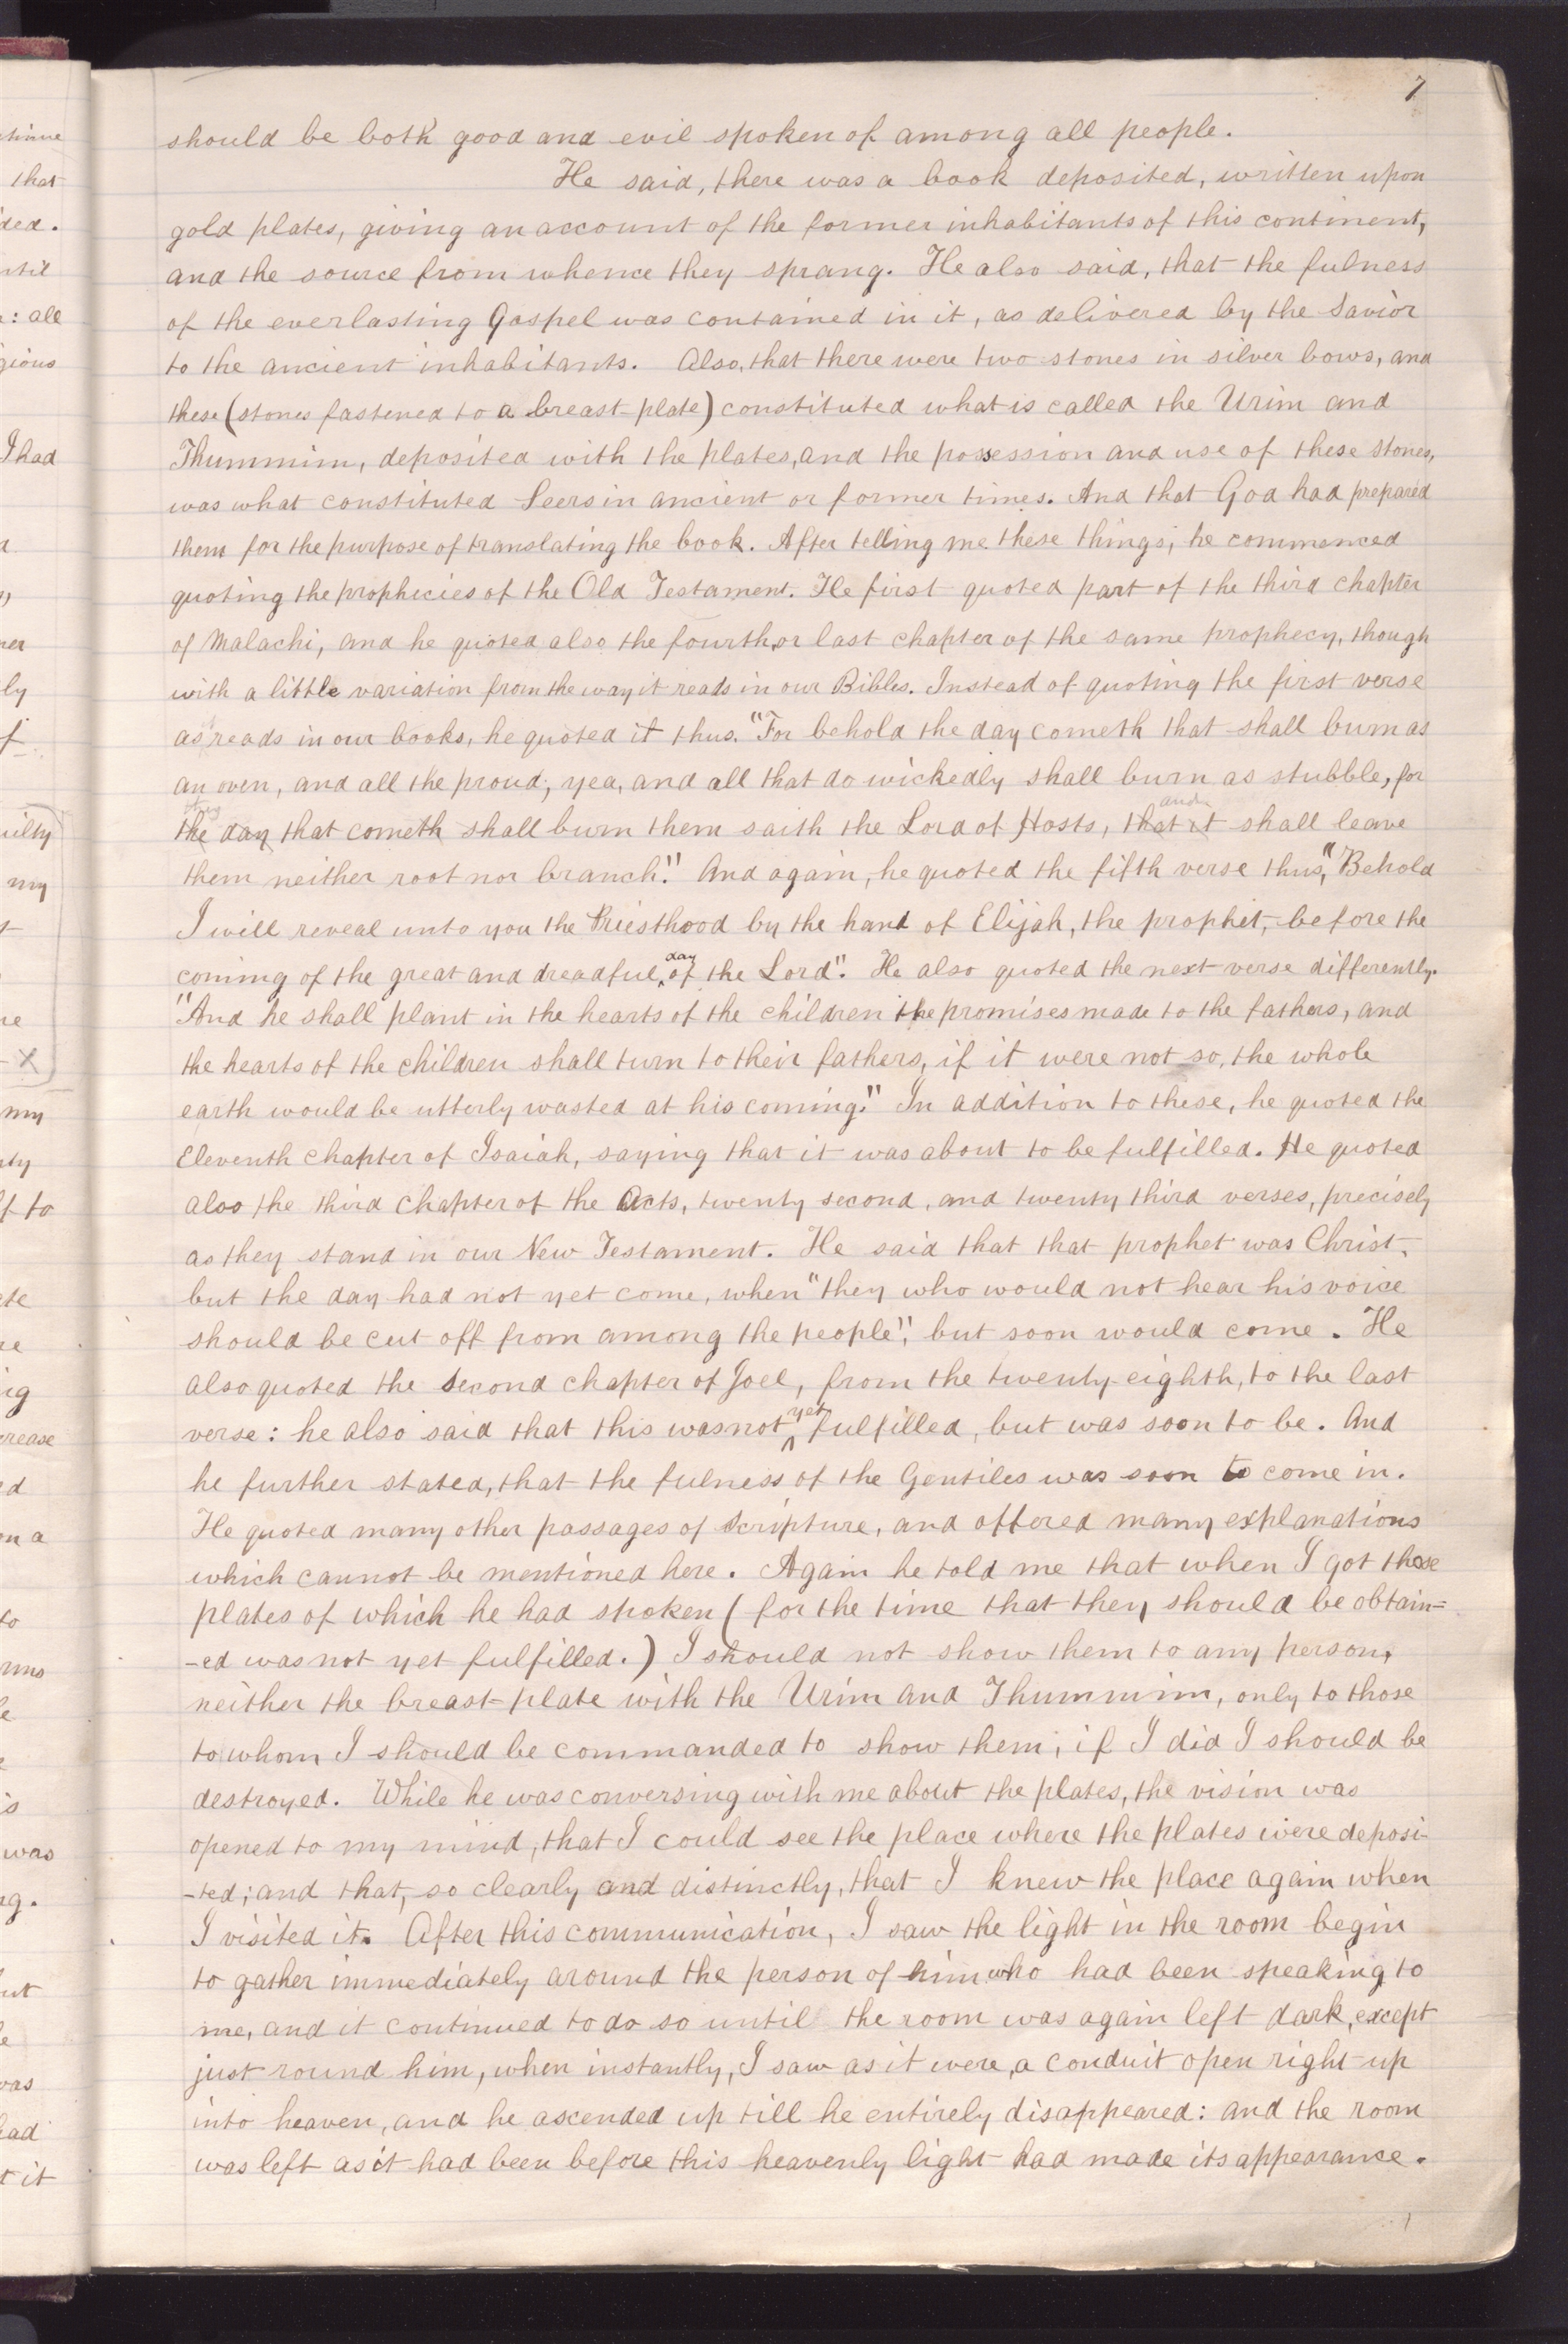 7
should be both good and evil spoken of among all people.
He said, there was a book deposited, written upon
gold plates, giving an account of the former inhabitants of this continent,
and the source from whence they sprang. He also said, that the fulness
of the everlasting Gospel was contained in it, as delivered by the Savior
to the ancient inhabitants. Also, that there were two stones in silver bows, and
these (stones fastened to a breast-plate) constituted what is called the Urim and
Thummim, deposited with the plates, and the possession and use of these stones,
was what constituted Seers in ancient or former times. And that God had prepared
them for the purpose of translating the book. After telling me these things, he commenced
quoting the prophicies of the Old Testament. He first quoted part of the third chapter
of Malachi, and he quoted also the fourth, or last chapter of the same prophecy, though
with a little variation from the way it reads in our Bibles. Instead of quoting the first verse
as reads in our books, he quoted it thus. "For behold the day cometh that shall burn as
an oven, and all the proud, yea, and all that do wickedly shall burn as stubble, for
and
the day that cometh shall burn them saith the Lord of Hosts, that it shall leave
them neither root nor branch." And again, he quoted the fifth verse thus, "Behold
I will reveal unto you the Priesthood by the hand of Elijah, the prophet, before the
coming of the great and dreadful day of the Lord". He also quoted the next verse differently.
"And he shall plant in the hearts of the children the promises made to the fathers, and
the hearts of the children shall turn to their fathers, if it were not so, the whole
earth would be utterly wasted at his coming." In addition to these, he quoted the
Eleventh chapter of Isaiah, saying that it was about to be fulfilled. He quoted
also the third chapter of the Acts, twenty second, and twenty third verses, precisely
as they stand in our New Testament. He said that that prophet was Christ,
but the day had not yet come, when "they who would not hear his voice
should be cut off from among the people", but soon would come. He
also quoted the second chapter of Joel, from the twenty-eighth, to the last
verse: he also said that this was not yet fulfilled, but was soon to be. And
he further stated, that the fulness of the Gentiles was soon to come in.
He quoted many other passages of scripture, and offered many explanations
which cannot be mentioned here. Again he told me that when I got these
plates of which he had spoken (for the time that they should be obtain=
-ed was not yet fulfilled.) I should not show them to any person,
neither the breast-plate with the Urim and Thummim, only to those
to whom I should be commanded to show them; if I did I should be
destroyed. While he was conversing with me about the plates, the vision was
opened to my mind, that I could see the place where the plates were deposi-
-ted; and that, so clearly and distinctly, that I knew the place again when
I visited it. After this communication, I saw the light in the room begin
to gather immediately around the person of him who had been speaking to
me, and it continued to do so until the room was again left dark, except
just round him, when instantly, I saw as it were, a conduit open right up
into heaven, and he ascended up till he entirely disappeared: and the room
was left as it had been before this heavenly light had made its appearance.